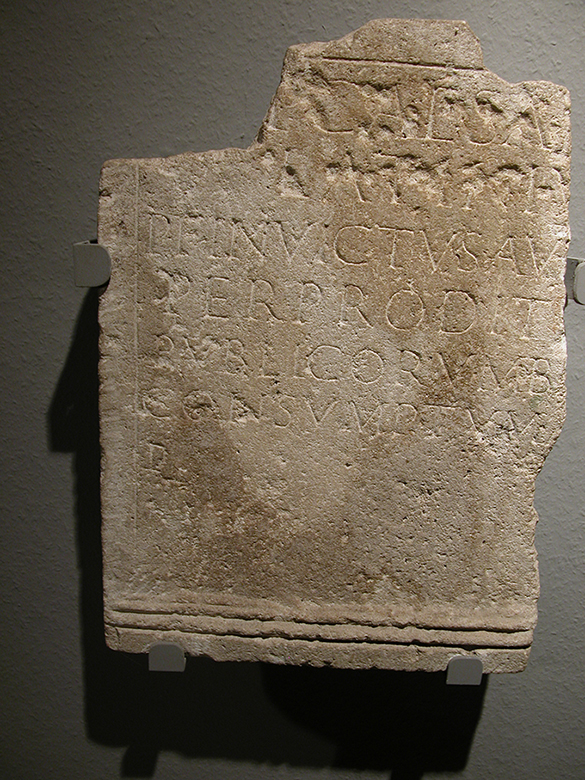 CAESA
P F INVICTVS AV
PER PRODIT
PVBLICORVM B
CONSVMPTVM V